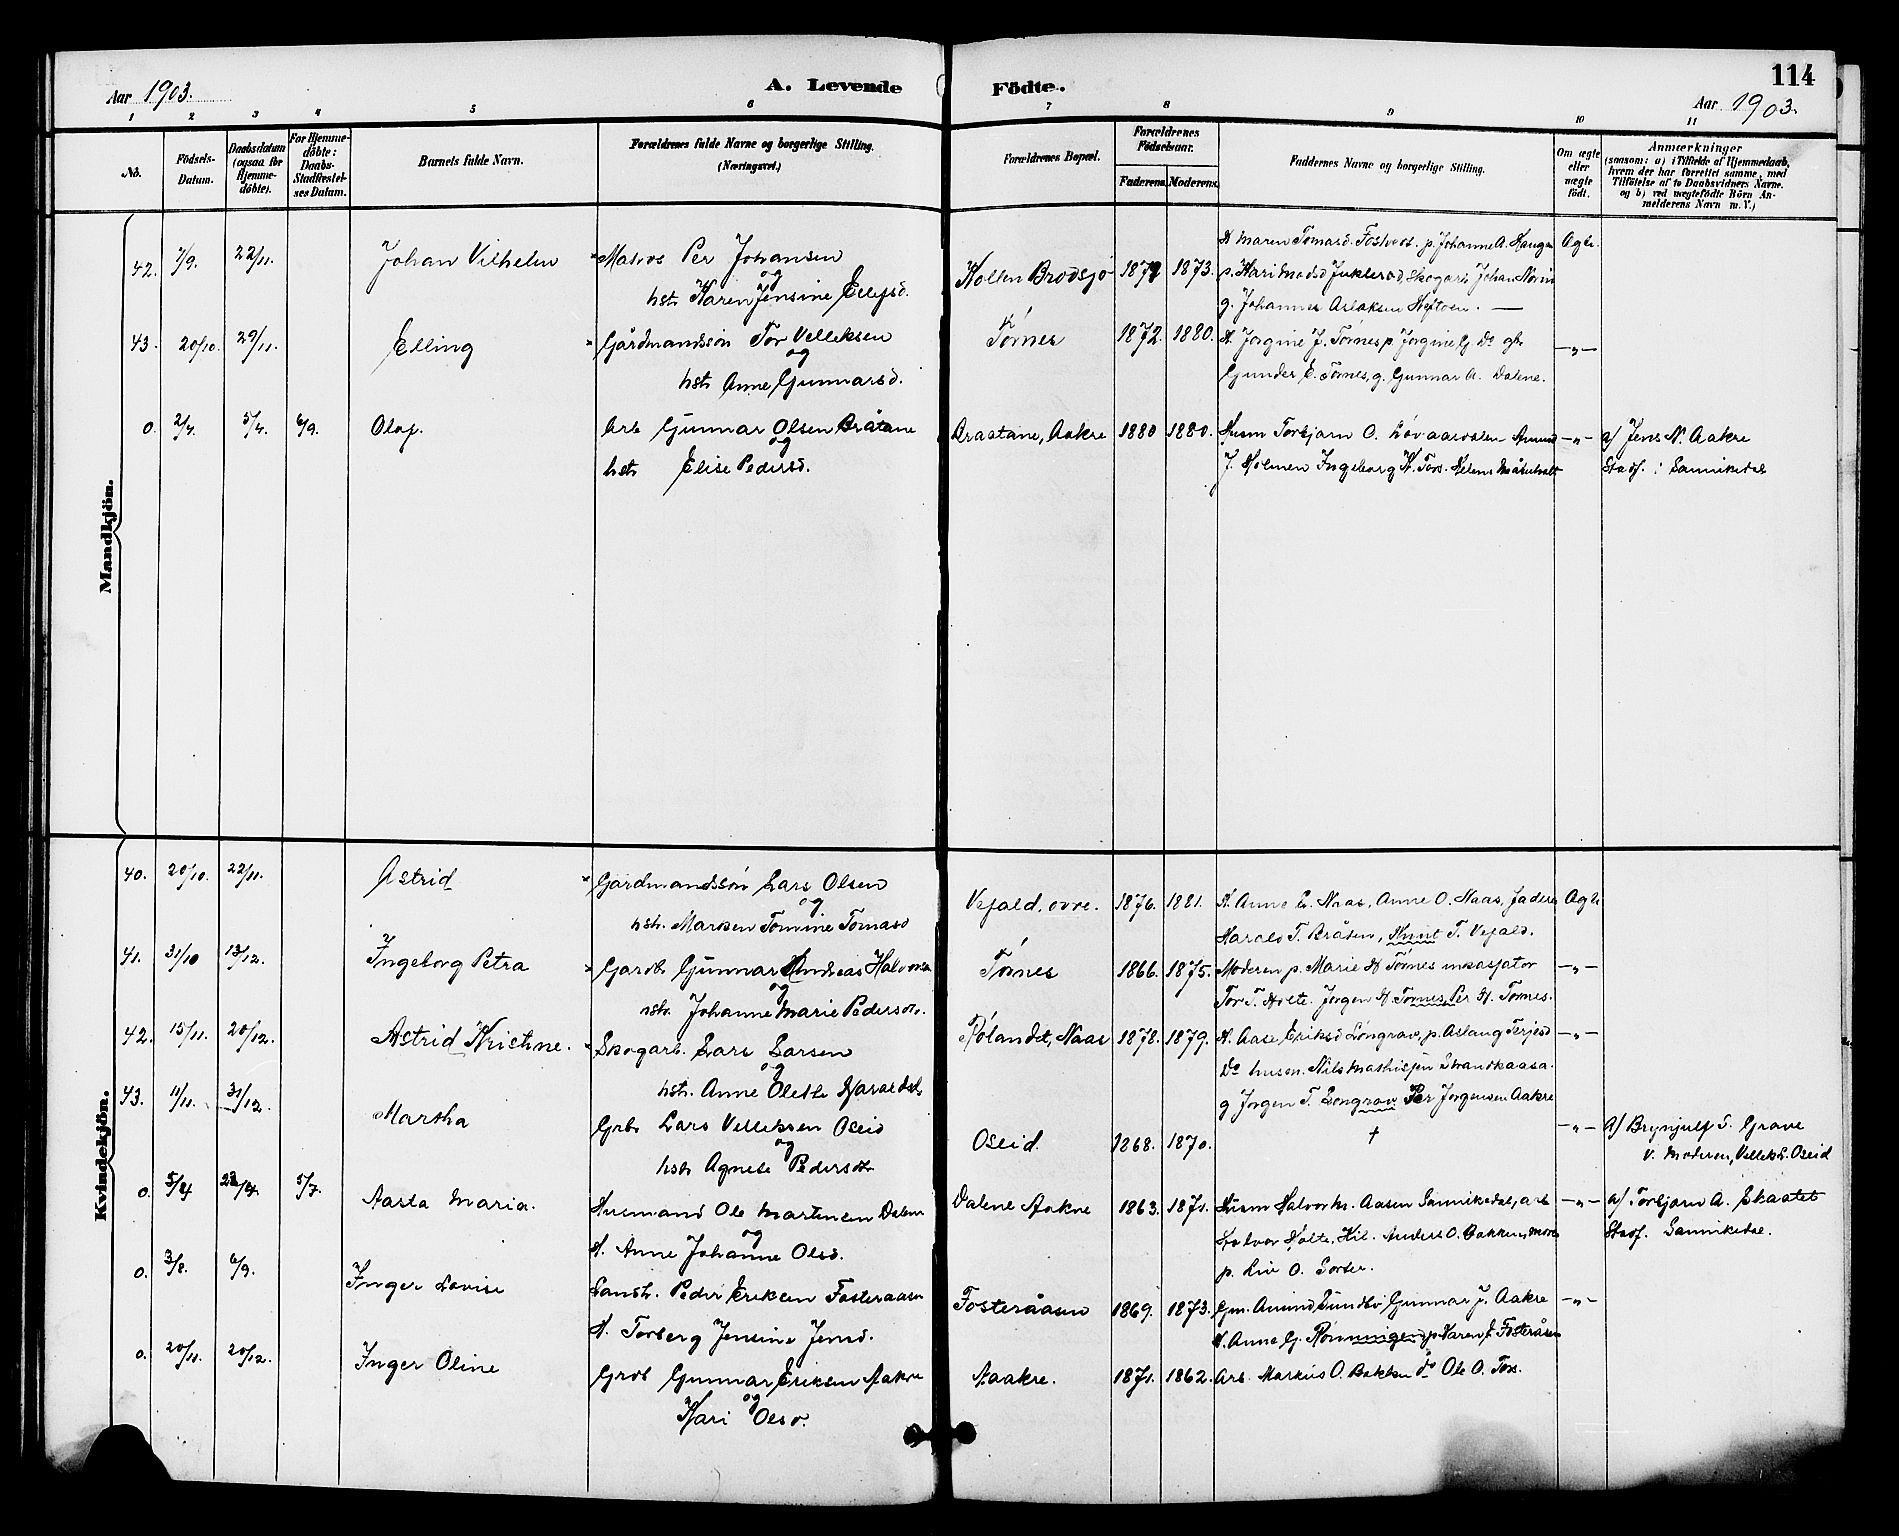 Aar 1903.
A. Levende Födte.
114
Aar 1903.
1 2 3 4 5 6 7 8 9 10 11
No.
Födsels-Datum.
Daabsdatum (ogsaa for Hjemme-döbte).
For Hjemme-döbte: Daabs-Stadfæstel-ses Datum.
Barnets fulde Navn.
Forældrenes fulde Navne og borgerlige Stilling. (Næringsvei.)
Forældrenes Bopæl.
Forældrenes Födselsaar.
Faderens. Moderens.
Faddernes Navne og borgerlige Stilling.
Om ægte eller uægte födt.
Anmærkninger
(saasom: a) i Tilfælde af Hjemmedaab,
hvem der har forrettet samme, med
Tilföielse af to Daabsvidners Navne,
og b) ved uægtefödte Börn An-
melderens Navn m. V.)
Mandkjön.
42. 7/9. 22/11. Johan Vilhelm Matros Per Johansen
og
hst. Karen Jensine Eilefsd.
Kollen Brødsjø 1879 1873.
K Maren Tomasd. Fostveds. p. Johanne A. Haugen Agte.
p. Kari Madsd Juklerød, Skogarb Johan
g. Johannes Aslaksen Heftoen.
43. 20/10. 29/11. Elling Gårdmandssön Tor Velleksen
og
hst. Anne Gunnarsd.
Törnes 1872. 1880.
K. Jorgine J. Törnes p. Jorgine G. Do gbr
Gunder E. Törnes, g. Gunnar A. Dalene.
—„—
0. 2/4. 5/4. 6/9. Olaf. Arb Gunnar Olsen Bråtane
og
hst Elise Pedersd.
Braatane, Aakre 1880 1880.
Husm Torbjørn O. Amund —„— a/ Jens N. Aakre
J. Holmen Ingeborg K. Tors. Helene Stadf. i Sannikedal
Kvindekjön.
40. 20/10. 22/11. Astrid Gårdmandssön Lars Olsen
og
hst. Maren Tomine Tomasd
Vefald, övre. 1876. 1881.
K. Anne L. Naas, Anne O. Naas, faderen Agte
Harald T. Bråten, Knut T. Vefald.
41. 31/10 13/12. Ingeborg Petra Gardb. Gunnar Andreas Halvorsen
og
hst. Johanne Marie Pedersdt.
Törnes 1866. 1875.
Moderen p. Marie H Törnes inkasjator —„—
Tor T. Holte. Jorgen H Törnes, Per H. Törnes.
42. 15/11. 20/12. Astrid Kristine. Skogarb. Lars Larsen
og
hst. Anne Olette
Rölandet, Naas 1878. 1879.
K. Aase Eriksd Löngrav, p. Aslaug Terjesd —„—
Do husm. Nils Mathisen Strandkaasa.
g Jorgen T. Longrav Per Jorgensen Aakre
43. 11/11. 31/12. Martha Grbr Lars Velleksen Oseid
og
hst Agnese Pedersdt
Oseid. 1868. 1870. † —„—
a/ Brynjulf S. Grave
v. Moderen, Vellek L. Oseid
0. 5/4 23/4. 5/7. Aasta Maria. Husmand Ole Martinsen Dalene
og
K. Anne Johanne Olsd.
Dalene Aakre 1863. 1871.
Husm Halvor H. Aasen Sannikedal, arb —„— a/ Torbjørn A. Skaatet
Halvor Holte, Kil. Anders O. Bakken, Moren Stadf. Sannikedal.
p. Liv O. Sorter.
0. 3/8. 6/9. Inger Lovise Landh. Peder Eriksen Fosteraasen
K. Torberg Jensine Jensd.
Fosteråasen 1869. 1873.
Gm. Amund Sundbö, Gunnar J. Aakre —„—
K. Anne G. Rønningen, p. Karen J. Fosteråsen
0. 20/11. 20/12. Inger Oline Grdb Gunnar Eriksen Aakre
og
Kari Olsd.
Aaakre. 1871. 1862.
Arb. Markus O. Bakken do Ole O. Tors.